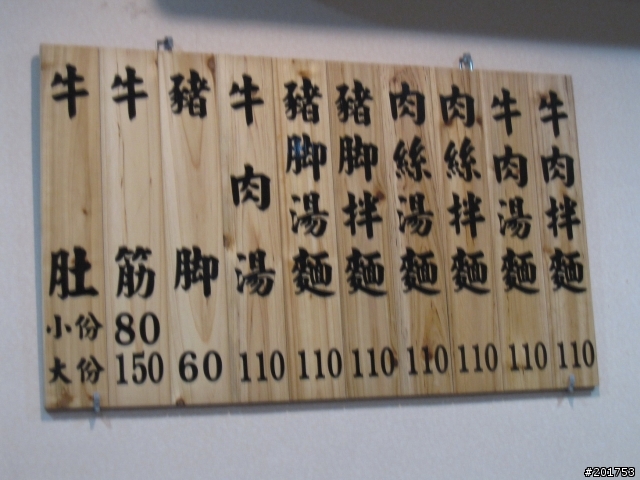 牛肉拌麵 110
牛肉湯麵 110
肉絲拌麵 110
肉絲湯麵 110
豬脚拌麵 110
豬脚湯麵 110
牛肉湯 110
豬脚 60
牛筋 80 150
牛肚 小份 大份
#201753